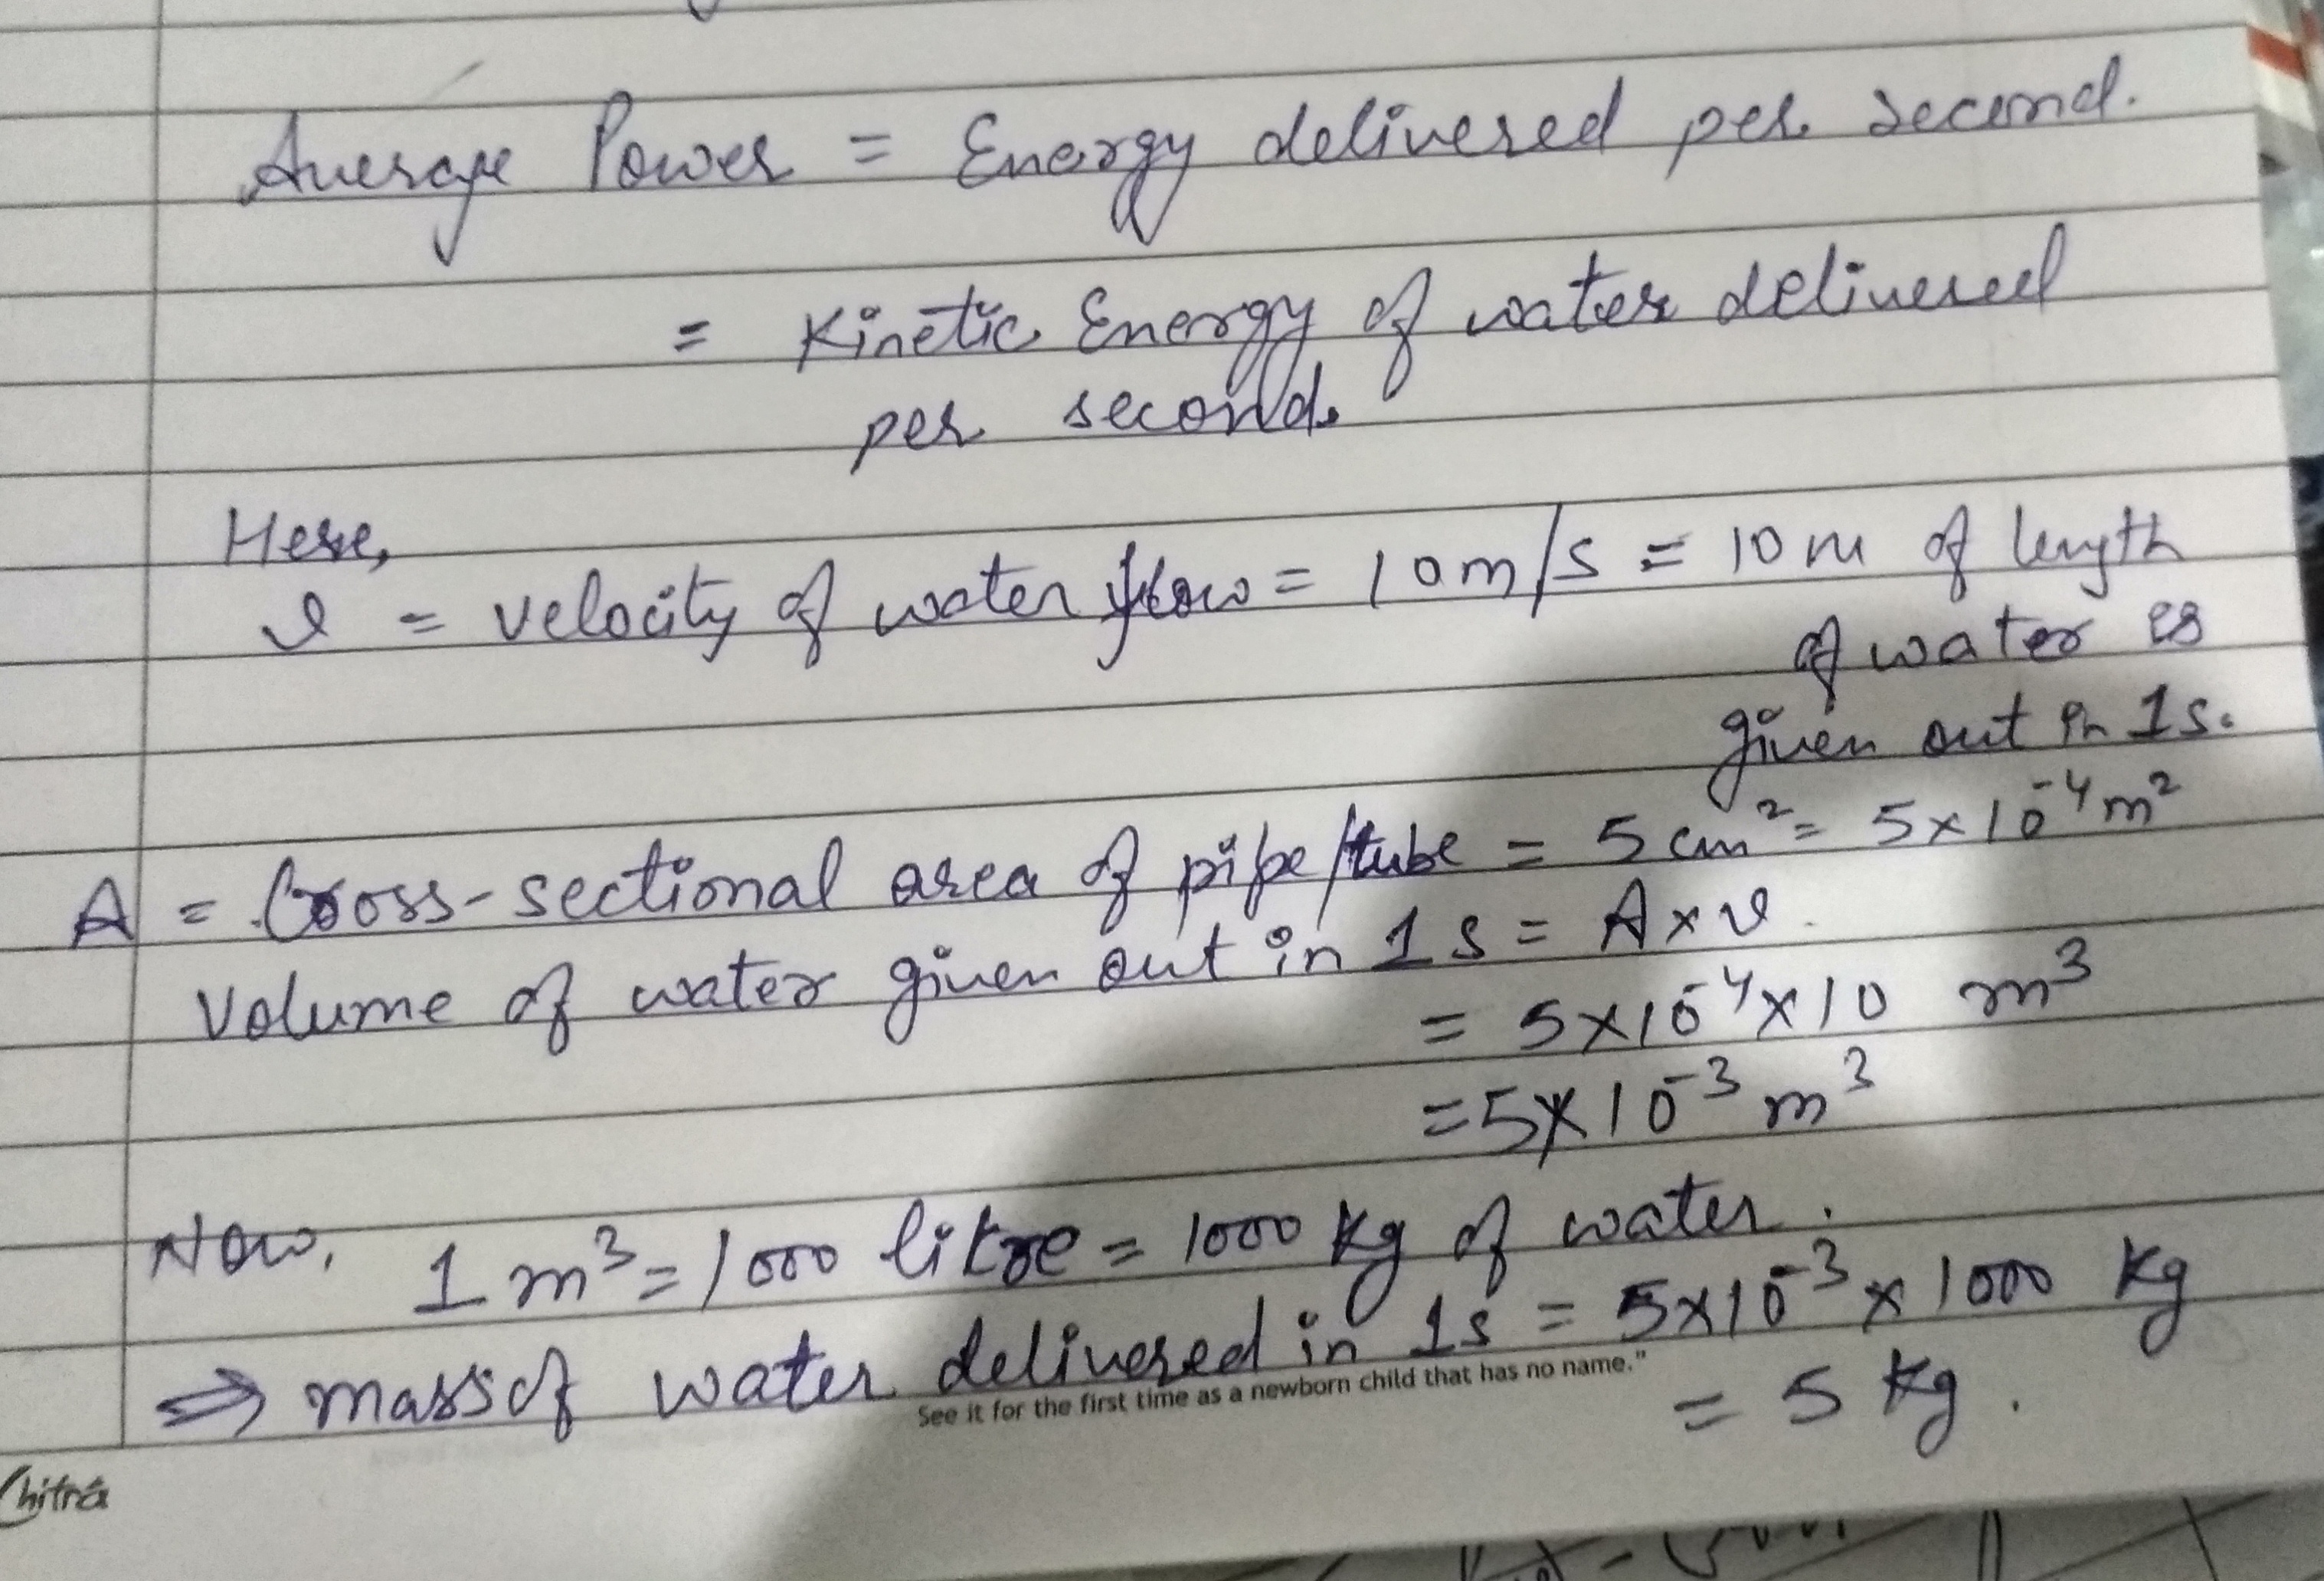 Average Power = Energy delivered per second.
= Kinetic Energy of water delivered
per second.
Here,
v = velocity of water flow = 10 m/s = 10 m of length
of water is
given out in 1s.
A = Cross-sectional area of pipe/tube = 5 cm² = 5×10⁻⁴ m²
Volume of water given out in 1 s = A × v.
= 5×10⁻⁴×10 m³
= 5×10⁻³ m³
Now, 1 m³ = 1000 litre = 1000 kg of water.
⇒ mass of water delivered in 1s = 5×10⁻³ × 1000 kg
See it for the first time as a newborn child that has no name."
= 5 kg.
Chitra